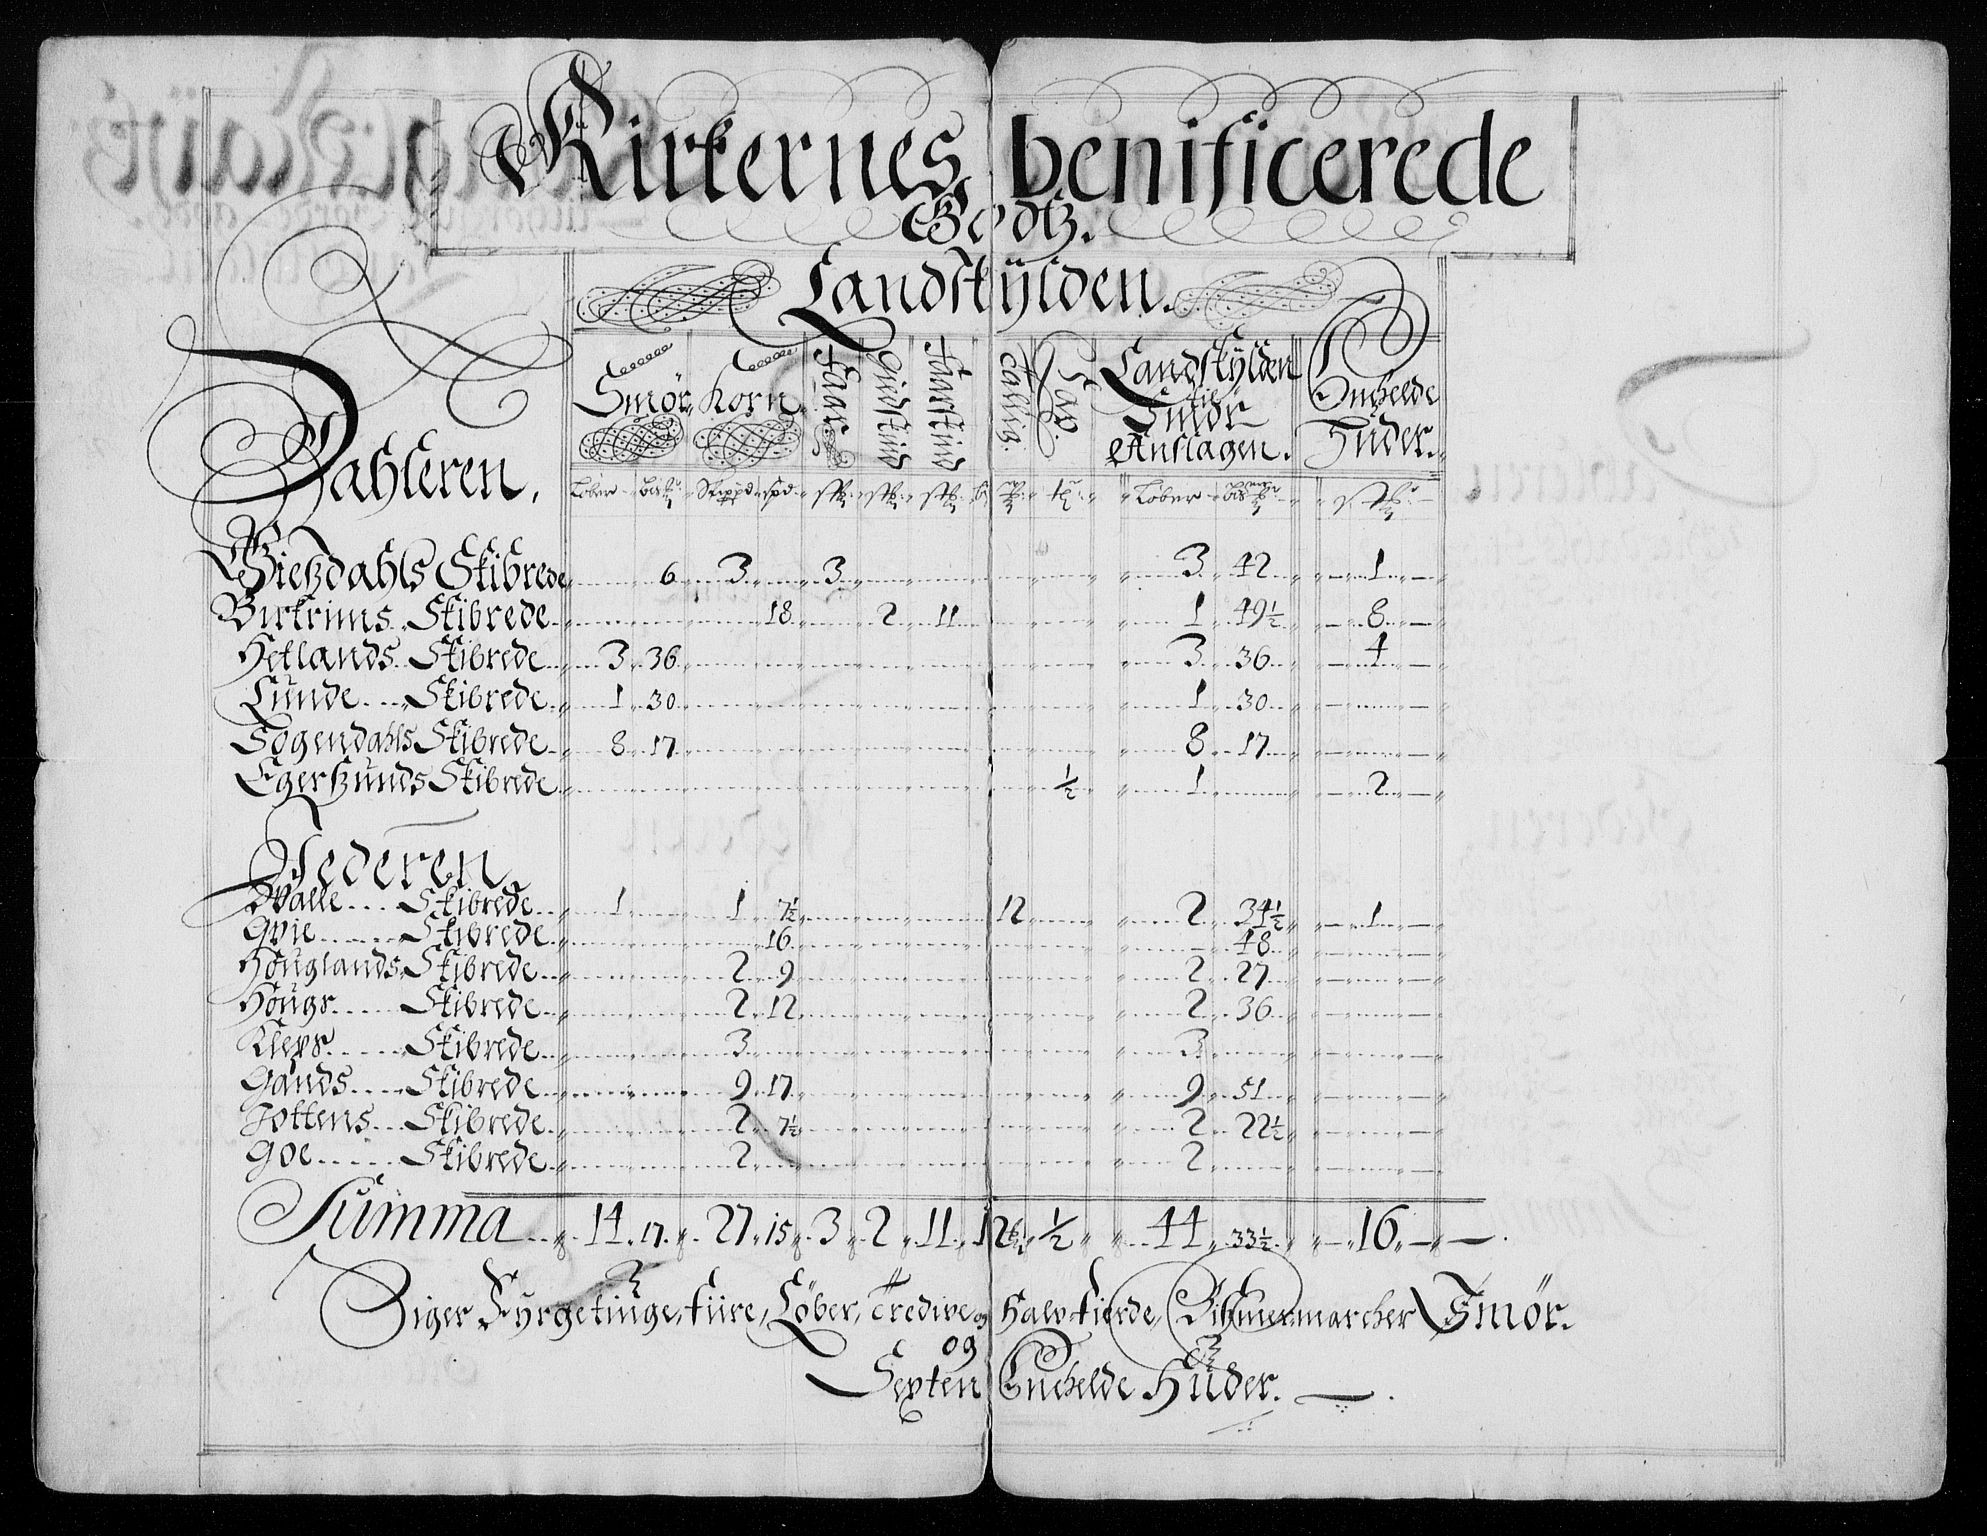 Kirkernes, benificerede
Godtz.
Landskÿlden.
Dahleren.
Smör, Korn, Faar, Giedskind Faarskind Tallig. Sap. Landskÿlden til Smör Anslagen. Enchelde Huder.
Löber Skippd spd Löber
Gietzdahls Skibrede 6 3 3 3 42 1
Birkrims Skibrede 18 2 11 1 49½ 8
Hetlands Skibrede 3 36 3 36 4
Lunde Skibrede 1 30 1 30
Sogendahls Skibrede 8 17 8 17
Egersunds Skibrede ½ 1 2
Jederen
Walle Skibrede 1 1 7½ 12 2 34½ 1
Qvie Skibrede 16 48
Houglands Skibrede 2 9 2 27
Hougs Skibrede 2 12 2 36
Kleps Skibrede 3 3
Gands Skibrede 9 17 9 51
Jottens Skibrede 2 7½ 2 22½
Goe Skibrede 2 2
Summa 14 17 27 15 3 2 11 12 ½ 44 33½ 16
Siger Fyrgetiuge, fiire, Löber, Tredive og Halv fierde, Smör.
og
Sexten Enchelde Huder.